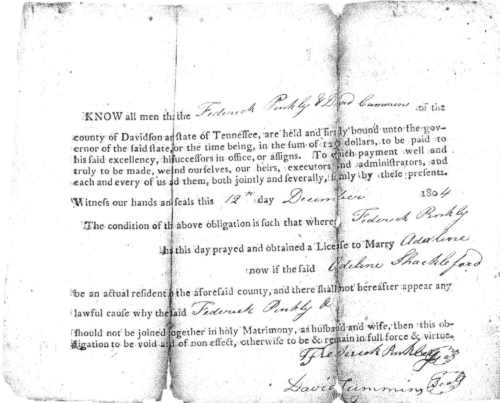 KNOW all men tha the Federick Pinkly & David Cummin of the
county of Davidson an state of Tennessee, are held and firmly bound unto the gov-
ernor of the said state, or the time being, in the sum of 12 dollars, to be paid to
his said excellency, his successors in office, or assigns. To which payment well and
truly to be made, we nd ourselves, our heirs, executors and administrators, and
each and every of us ad them, both jointly and severally, firmly by these presents.
Witness our hands an seals this 12th day December 1804
The condition of th above obligation is such that where Federick Pinkly
hs this day prayed and obtained a License to Marry Adaline
now if the said Adeline Shackleford
be an actual resident the aforesaid county, and there shall not hereafter appear any
lawful cause why the said Federick Pinkly &
should not be joined together in holy Matrimony, as husband and wife, then this ob-
ligation to be void and of non effect, otherwise to be & remain in full force & virtue.
Frederick Pinkley
David Cummins Seal